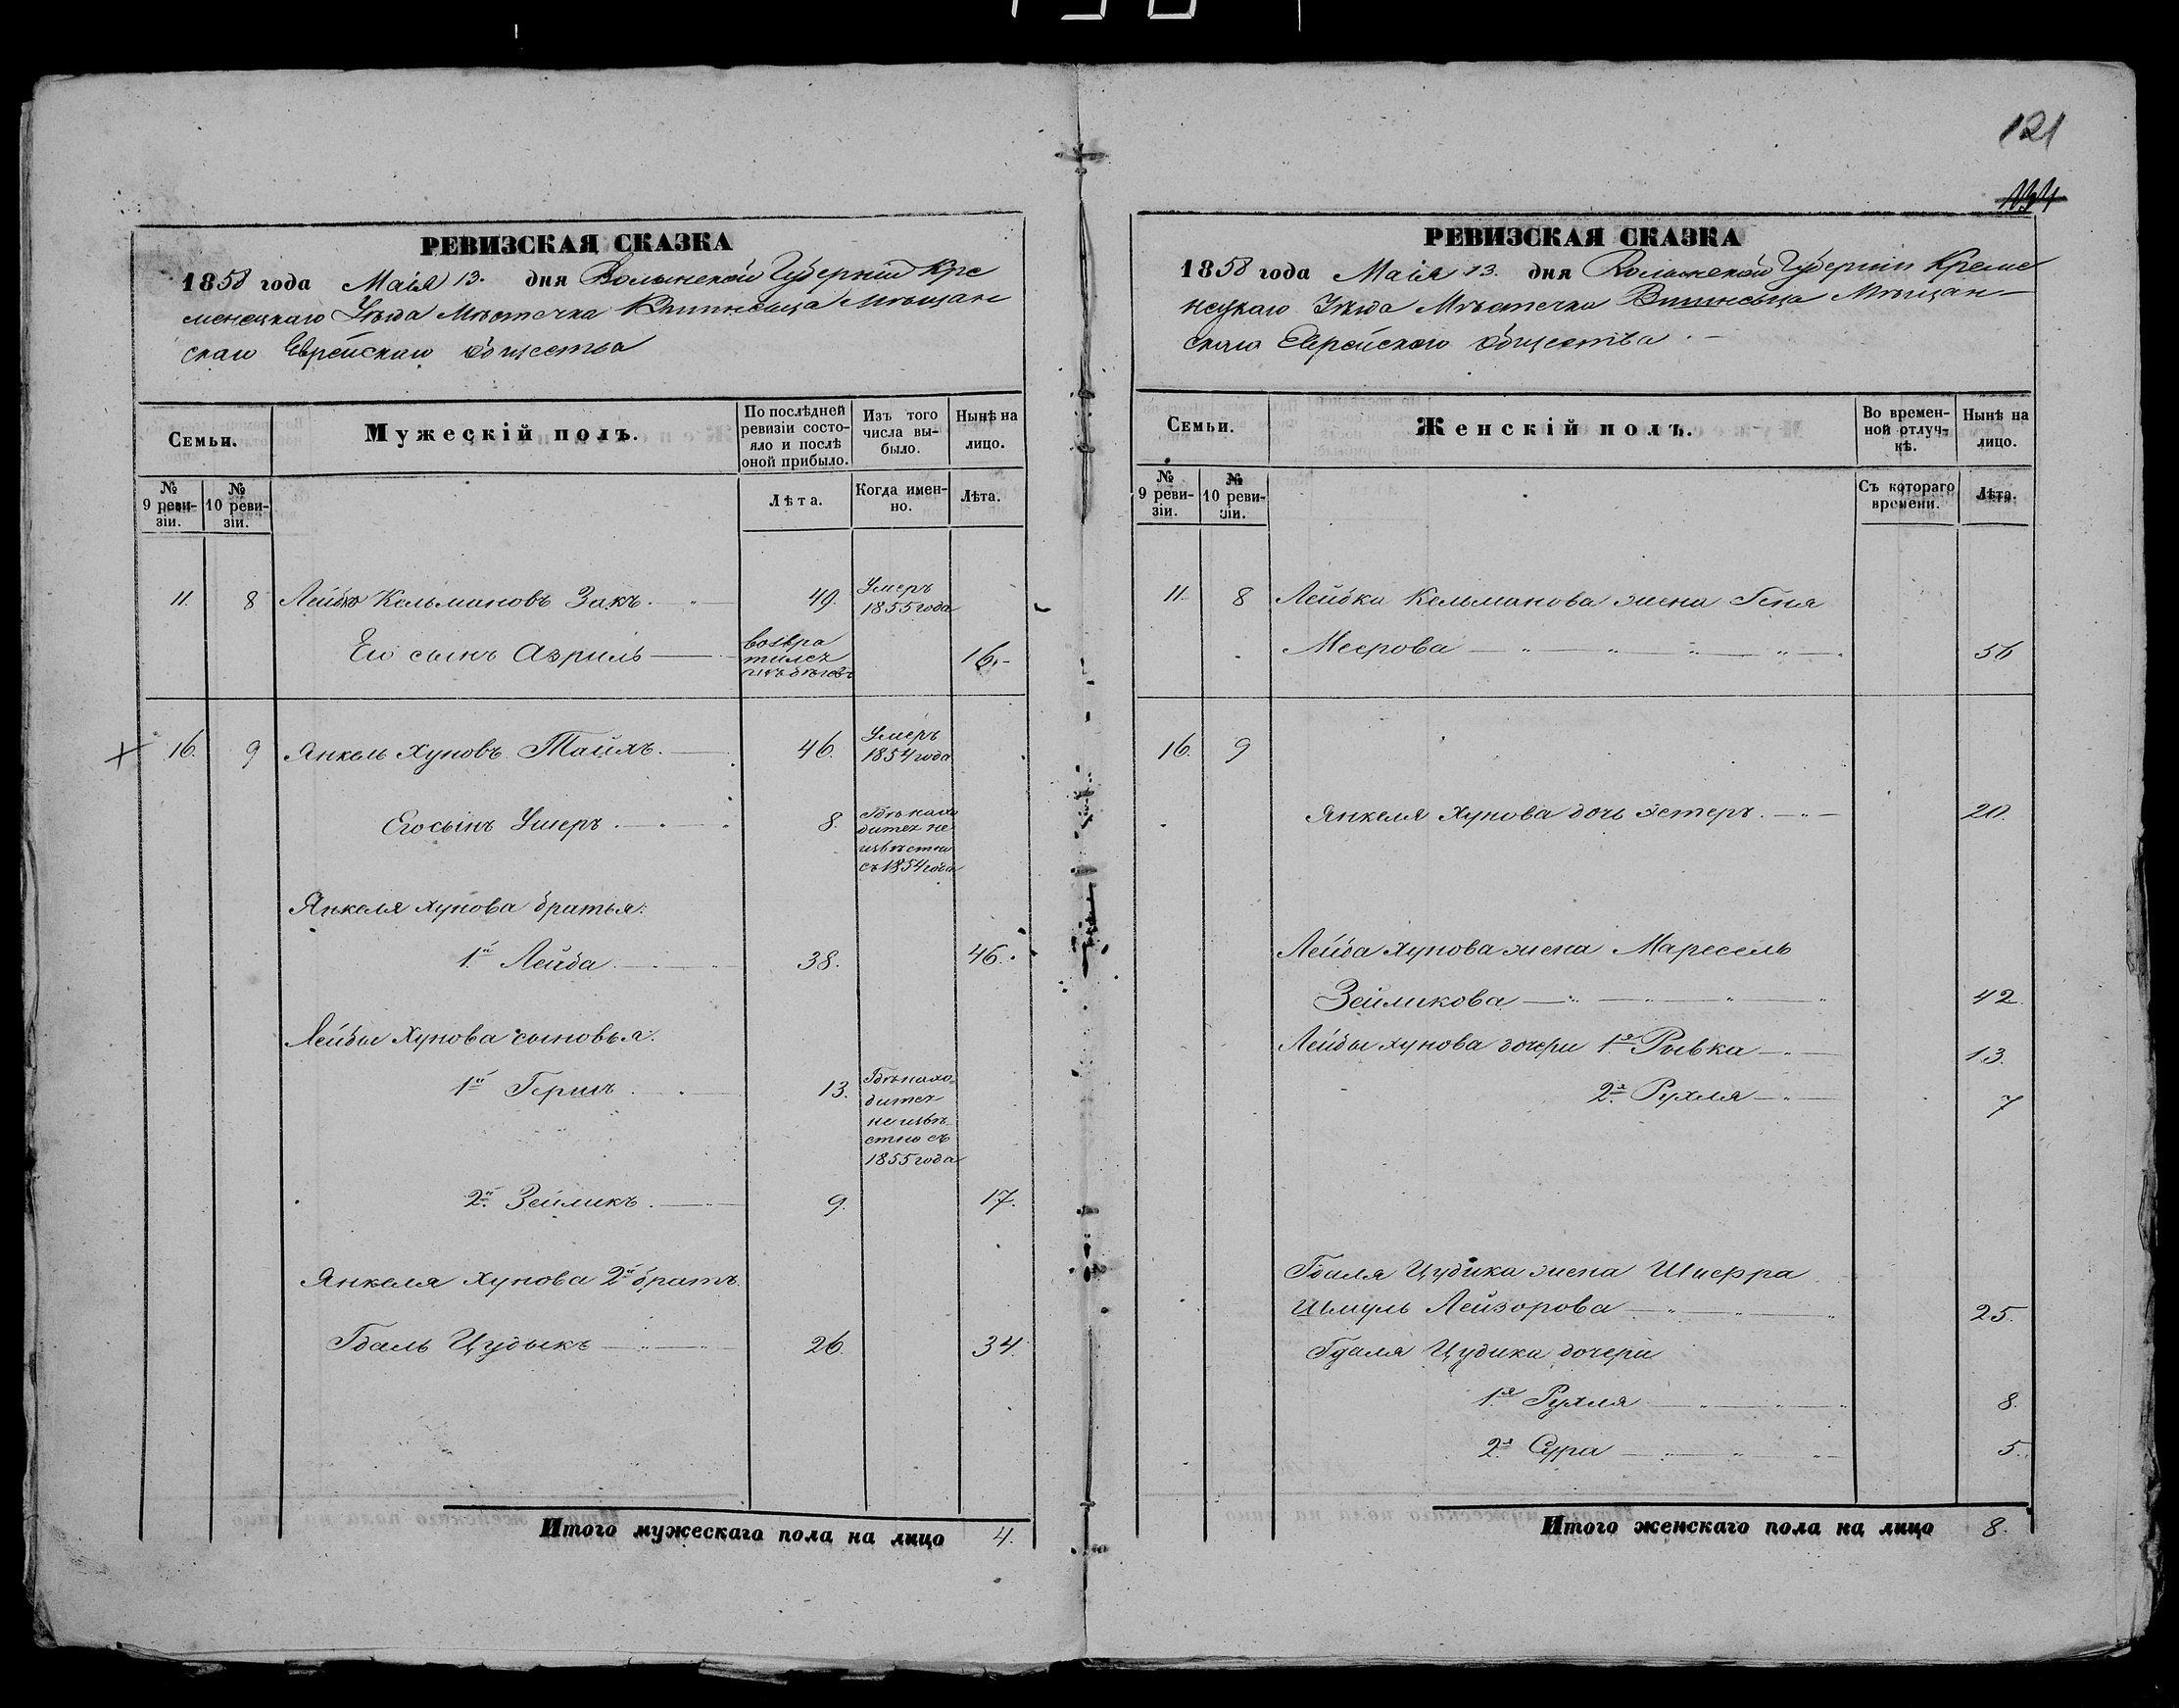 121
РЕВИЗСКАЯ СКАЗКА
1858 года Маія 13. дня Волынской Губерніи Кре
менецкаго Уѣзда Мѣстечка Вишневца Мѣщан
скаго Еврейскаго Общества
Семьи.
Мужескій полъ.
По послѣдней ревизіи состояло и послѣ оной прибыло.
Изъ того числа выбыло.
Нынѣ на лицо.
№ 9 ревизіи.
№ 10 ревизіи.
Лѣта.
Когда именно.
Лѣта.
11. 8 Лейбко Кельмановъ Закъ. 49. Умеръ 1855 года
Его сынъ Азриль возвратился изъ бѣговъ 16.
16. 9 Янкель Хуновъ Тайхъ. 46. Умеръ 1854 года
Его сынъ Ушеръ. 8. Гдѣ находится не извѣстно съ 1854 года
Янкеля Хунова братья:
1й Лейба 38. 46.
Лейбы Хунова сыновья:
1й Гершъ 13. Гдѣ находится не извѣстно съ 1855 года
2й Зейликъ. 9. 17.
Янкеля Хунова 2й братъ
Гдаль Цудыкъ 26. 34.
Итого мужескаго пола на лицо 4.
РЕВИЗСКАЯ СКАЗКА
1858 года Маія 13. дня Волынской Губерніи Креме
нецкаго Уѣзда Мѣстечка Вишневца Мѣщан-
скаго Еврейскаго Общества.
Семьи.
Женскій полъ.
Во временной отлучкѣ.
Нынѣ на лицо.
№ 9 ревизіи.
№ 10 ревизіи.
Съ котораго времени.
Лѣта.
11. 8 Лейбки Кельманова жена Геня
Меерова 56
16. 9
Янкеля Хунова дочь Эстеръ. 20.
Лейба Хунова жена
Зейликова 42.
Лейбы Хунова дочери 1я Рывка 13.
2я Рухля 7
Гдаля Цудика жена Шифра
Шмуль Лейзорова 25.
Гдаля Цудика дочери
1я Рухля 8.
2я Сура 5.
Итого женскаго пола на лицо 8.